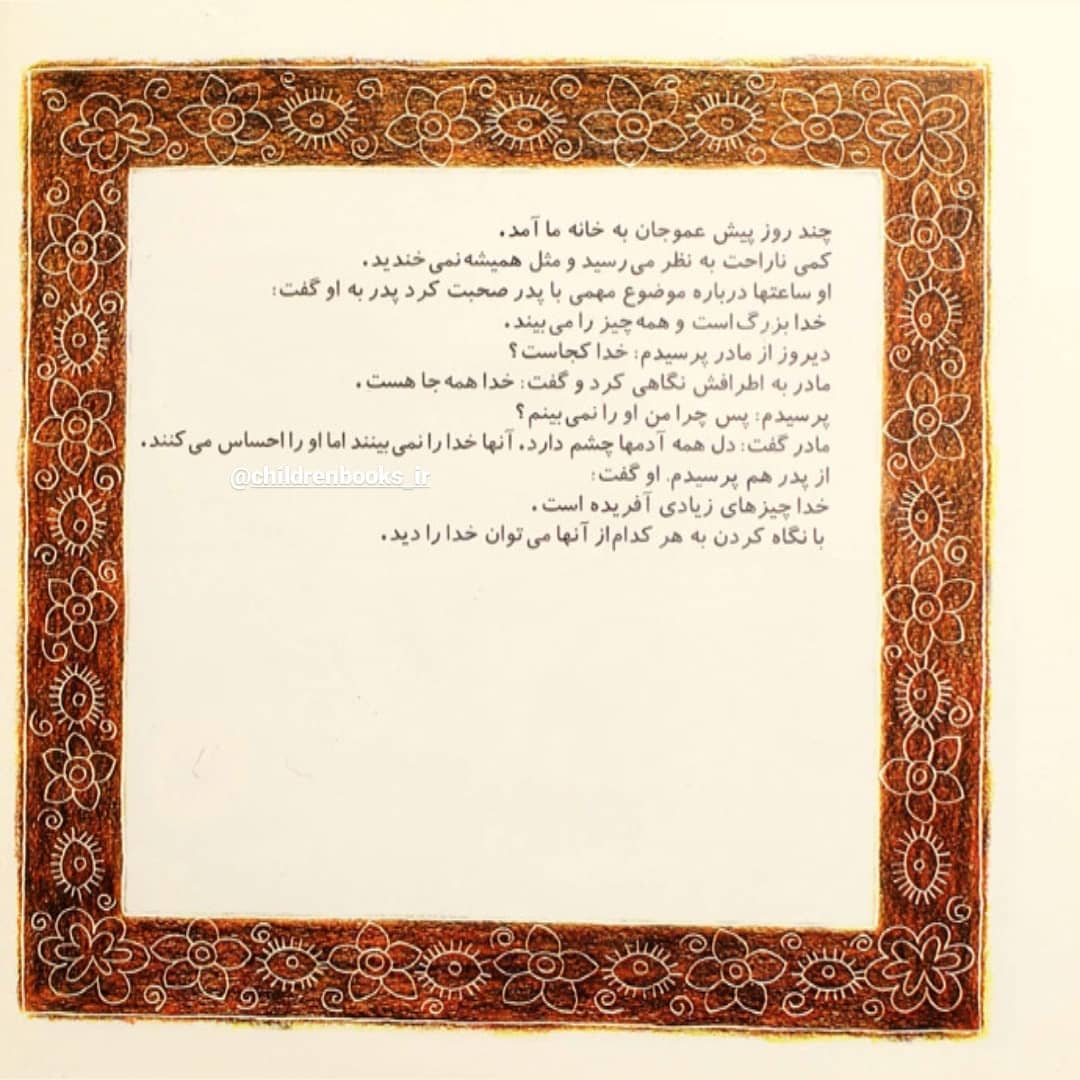 چند روز پیش عموجان به خانه ما آمد.
کمی ناراحت به نظر می‌رسید و مثل همیشه نمی‌خندید.
او ساعتها درباره موضوع مهمی با پدر صحبت کرد پدر به او گفت:
خدا بزرگ است و همه چیز را می‌بیند.
دیروز از مادر پرسیدم: خدا کجاست؟
مادر به اطرافش نگاهی کرد و گفت: خدا همه جا هست.
پرسیدم: پس چرا من او را نمی‌بینم؟
مادر گفت: دل همه آدمها چشم دارد. آنها خدا را نمی‌بینند اما او را احساس می‌کنند.
@childrenbooks_ir
از پدر هم پرسیدم. او گفت:
خدا چیزهای زیادی آفریده است.
با نگاه کردن به هر کدام از آنها می‌توان خدا را دید.